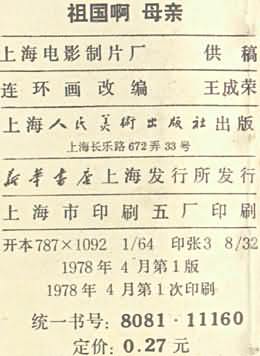 祖国啊 母亲
上海电影制片厂 供稿
连环画改编 王成荣
上海人民美術出版社出版
上海长乐路672弄33号
新华书店上海发行所发行
上海市印刷五厂印刷
开本787×1092 1/64 印张3 8/32
1978年4月第1版
1978年4月第1次印刷
统一书号：8081·11160
定价：0.27元